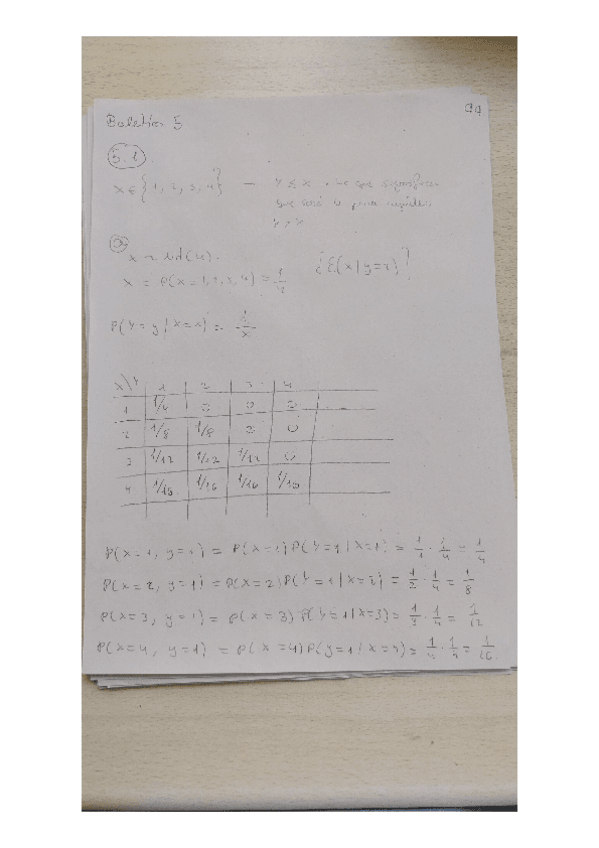 Boletín 5
5.1
X ∈ {1, 2, 3, 4} — Y ≤ X, lo que significa
que será 0 para
Y > X
a)
X ~ Ud(4).
X = P(X = 1, 2, 3, 4) = 1/4 ¿E(X|Y=2)?
P(Y = y | X = x) = 1/x
X\Y 1 2 3 4
1 1/4 0 0 0
2 1/8 1/8 0 0
3 1/12 1/12 1/12 0
4 1/16 1/16 1/16 1/16
P(X=1, Y=1) = P(X=1)P(Y=1|X=1) = 1/1 · 1/4 = 1/4
P(X=2, Y=1) = P(X=2)P(Y=1|X=2) = 1/2 · 1/4 = 1/8
P(X=3, Y=1) = P(X=3)P(Y=1|X=3) = 1/3 · 1/4 = 1/12
P(X=4, Y=1) = P(X=4)P(Y=1|X=4) = 1/4 · 1/4 = 1/16